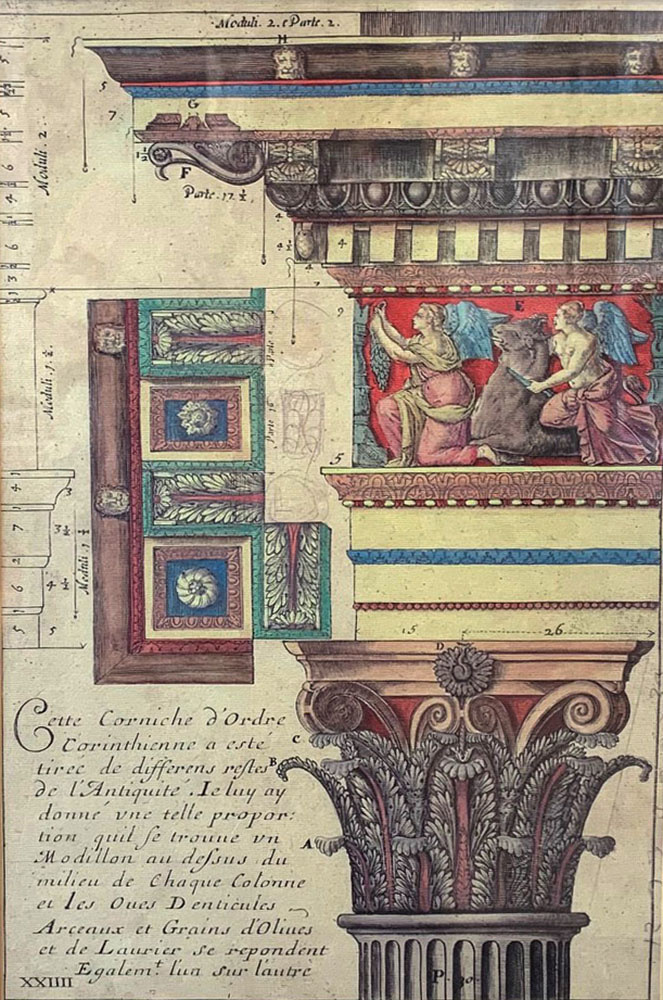 Moduli. 2. e Parte. 2.
H H
5
7
G
Moduli 2.
1½
F
Parte. 17 ½
4
4½ 4 4
7
9 E
Moduli. 1. ½
5
3
3½
7
4 ½
2
6
5 5
Moduli 1 ½
15 26
D
C
B
A
Cette Corniche d'Ordre
Corinthienne a esté
tirée de differens restes
de l'Antiquité. Ie luy ay
donné vne telle propor:
tion quil se trouue vn
Modillon au dessus du
milieu de Chaque Colonne
et les Oues Denticules
Arceaux et Grains d'Oliues
et de Laurier se repondent
Egalemt. l'un sur l'autre
XXIIII
P.